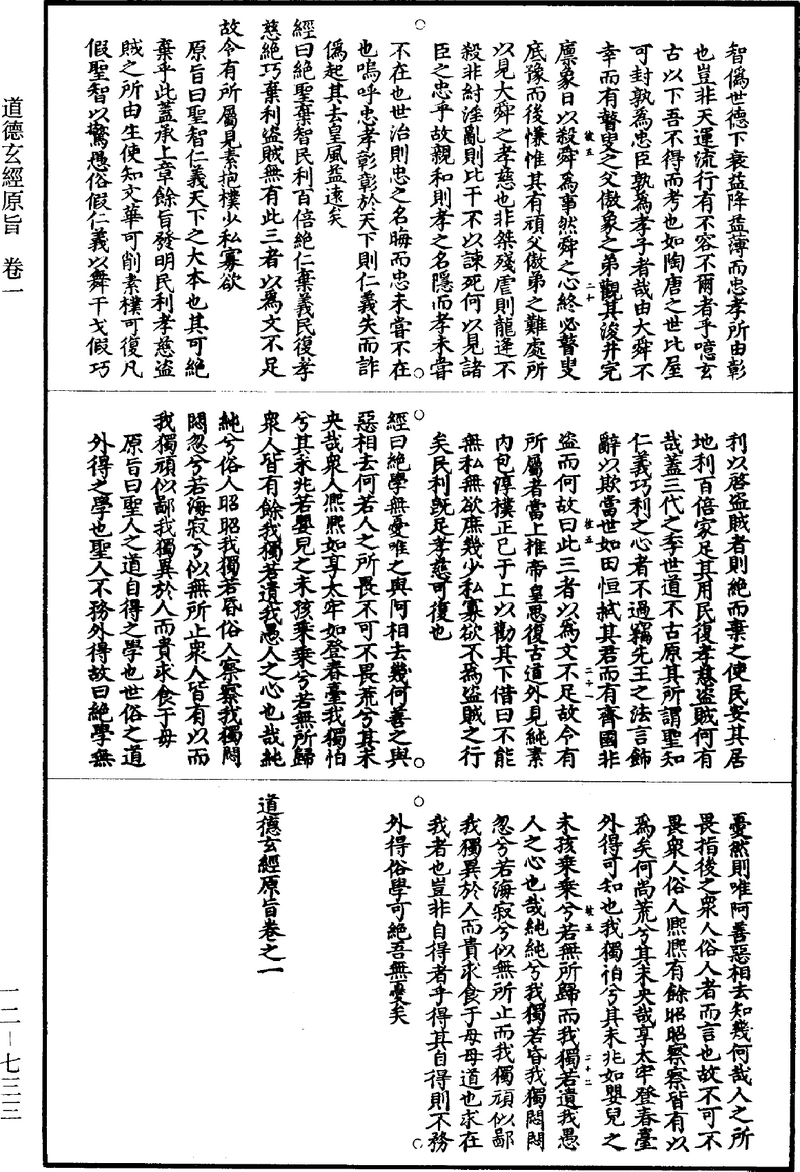 道德玄經原旨　卷一
一二－七三三
智僞世德下衰益降益薄而忠孝所由彰
也豈非天運流行有不容不爾者乎噫玄
古以下吾不得而考也如陶唐之世比屋
可封孰為忠臣孰為孝子者哉由大舜不
幸而有瞽叟之父傲象之弟觀其浚井完
廩象日以殺舜為事然舜之心終必瞽叟
底豫而後慊惟其有頑父傲弟之難處所
以見大舜之孝慈也非桀殘虐則龍逢不
殺非紂淫亂則比干不以諫死何以見諸
臣之忠乎故親和則孝之名隱而孝未嘗
不在也世治則忠之名晦而忠未嘗不在
也嗚呼忠孝彰彰於天下則仁義失而詐
僞起其去皇風益遠矣
經曰絕聖棄智民利百倍絕仁棄義民復孝
慈絕巧棄利盜賊無有此三者以為文不足
故令有所屬見素抱樸少私寡欲
原旨曰聖智仁義天下之大本也其可絕
棄乎此蓋承上章餘旨發明民利孝慈盜
賊之所由生使知文華可削素樸可復凡
假聖智以驚愚俗假仁義以舞干戈假巧
利以啓盜賊者則絕而棄之使民安其居
地利百倍家足其用民復孝慈盜賊何有
哉蓋三代之季世道不古原其所謂聖知
仁義巧利之心者不過竊先王之法言飾
辭以欺當世如田恒弒其君而有齊國非
盜而何故曰此三者以為文不足故令有
所屬者當上推帝皇思復古道外見純素
內包淳樸正己于上以勸其下借曰不能
無私無欲庶幾少私寡欲不為盜賊之行
矣民利既足孝慈可復也
經曰絕學無憂唯之與阿相去幾何善之與
惡相去何若人之所畏不可不畏荒兮其未
央哉衆人熙熙如享太牢如登春臺我獨怕
兮其未兆若嬰兒之未孩乘乘兮若無所歸
衆人皆有餘我獨若遺我愚人之心也哉純
純兮俗人昭昭我獨若昏俗人察察我獨悶
悶忽兮若海寂兮似無所止衆人皆有以而
我獨頑似鄙我獨異於人而貴求食于母
原旨曰聖人之道自得之學也世俗之道
外得之學也聖人不務外得故曰絕學無
憂然則唯阿善惡相去知幾何哉人之所
畏指後之衆人俗人者而言也故不可不
畏衆人俗人熙熙有餘昭昭察察皆有以
為矣何尚荒兮其未央哉享太牢登春臺
外得可知也我獨怕兮其未兆如嬰兒之
未孩乘乘兮若無所歸而我獨若遺我愚
人之心也哉純純兮我獨若昏我獨悶悶
忽兮若海寂兮似無所止而我獨頑似鄙
我獨異於人而貴求食于母母道也求在
我者也豈非自得者乎得其自得則不務
外得俗學可絕吾無憂矣
道德玄經原旨卷之一